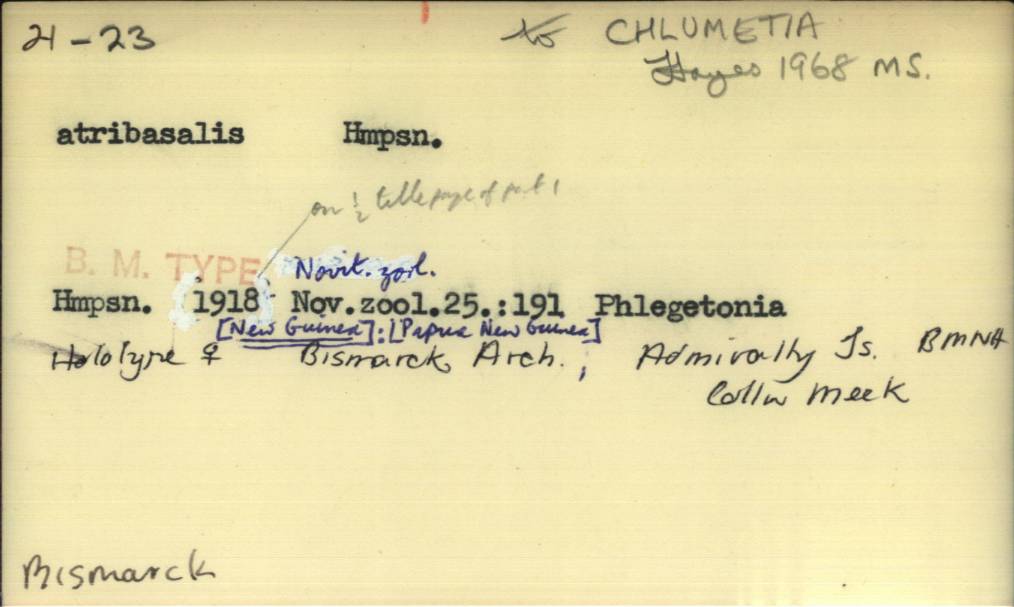 21-23
to CHLUMETIA
Hayes 1968 MS.
atribasalis Hmpsn.
on ½ title page of part 1
B. M. TYPE
Novit. zool.
Hmpsn. (1918) Nov.zool.25.:191 Phlegetonia
[New Guinea]:[Papua New Guinea]
Holotype ♀ Bismarck Arch. ; Admiralty Is. BMNH
Meek
Bismarck